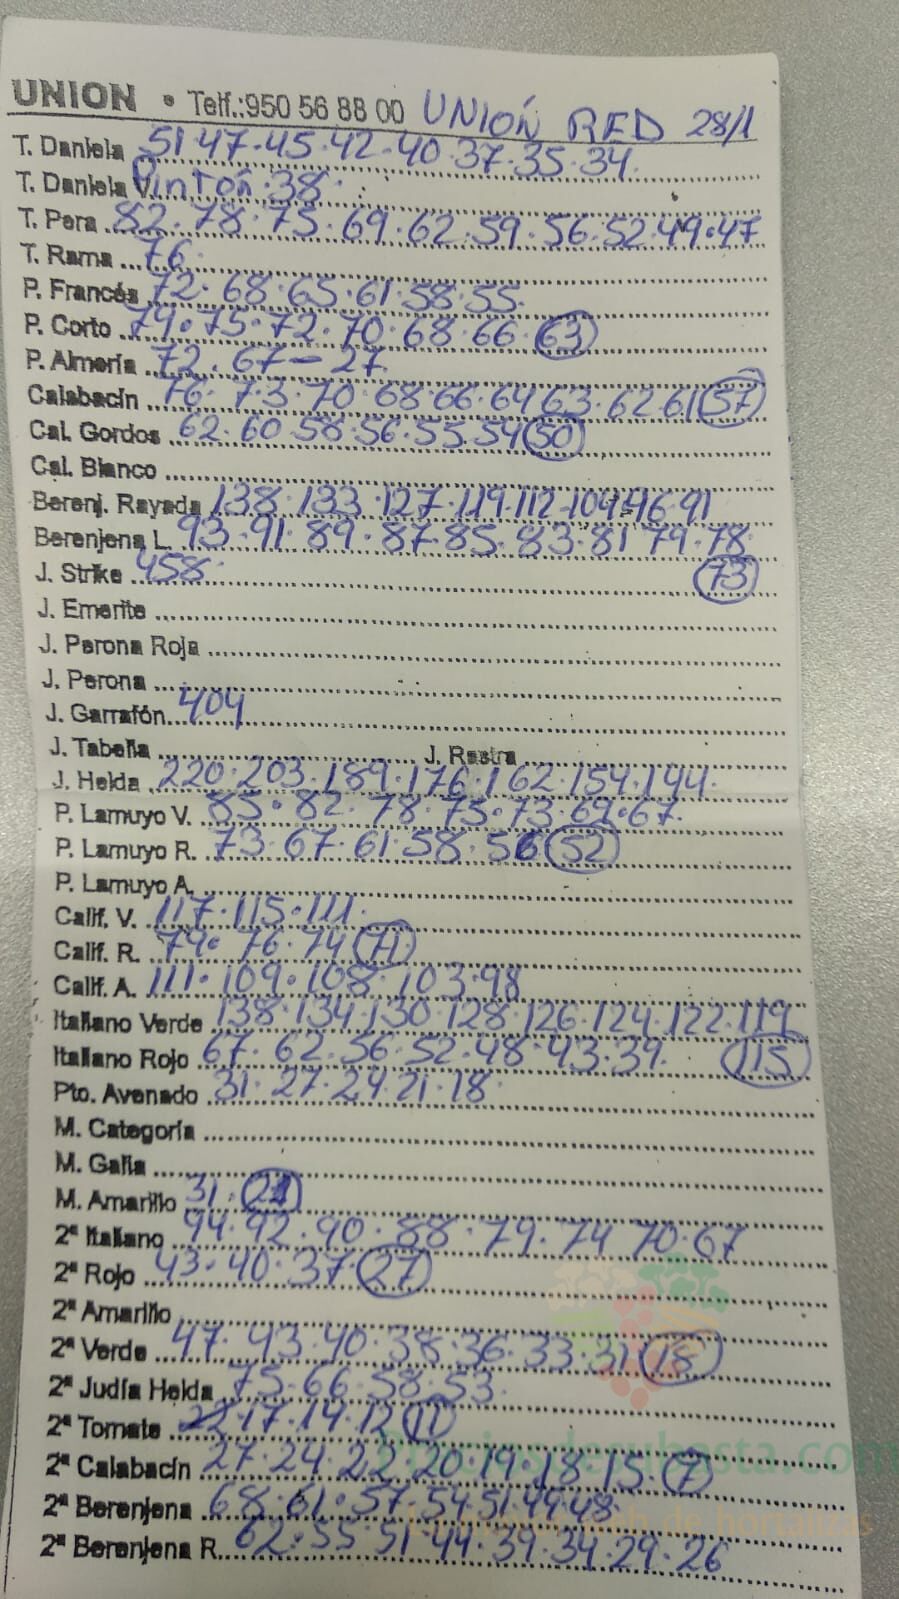 UNION • Telf.:950 56 88 00 UNIÓN RED 28/1
T. Daniela 51·47·45·42·40·37·35·34
T. Daniela V. Pintón·38
T. Pera 82·78·75·69·62·59·56·52·49·47
T. Rama 76
P. Francés 72·68·65·61·58·55
P. Corto 79·75·72·70·68·66·63
P. Almería 72·67-27
Calabacín 76·73·70·68·66·64·63·62·61·57
Cal. Gordos 62·60·58·56·55·54·50
Cal. Blanco
Berenj. Rayada 138·133·127·119·112·104·96·91
Berenjena L. 93·91·89·87·85·83·81·79·78
J. Strike 458 73
J. Emerite
J. Perona Roja
J. Perona
J. Garrafón 404
J. Tabella J. Rastra
J. Helda 220·203·189·176·162·154·144
P. Lamuyo V. 85·82·78·75·73·69·67
P. Lamuyo R. 73·67·61·58·56·52
P. Lamuyo A.
Calif. V. 117·115·111
Calif. R. 79·76·74·71
Calif. A. 111·109·108·103·98
Italiano Verde 138·134·130·128·126·124·122·119
Italiano Rojo 67·62·56·52·48·43·39 115
Pto. Avenado 31·27·24·21·18
M. Categoría
M. Galia
M. Amarillo 31
2ª Italiano 94·92·90·88·79·74·70·67
2ª Rojo 43·40·37·27
2ª Amarillo
2ª Verde 47·43·40·38·36·33·31·18
2ª Judía Helda 75·66·58·53
2ª Tomate 17·14·12·11
2ª Calabacín 27·24·22·20·19·18·15·7
2ª Berenjena 68·61·57·54·51·49·48
2ª Berenjena R. 62·55·51·44·39·34·29·26
Preciosdesubasta.com
La mejor web de hortalizas